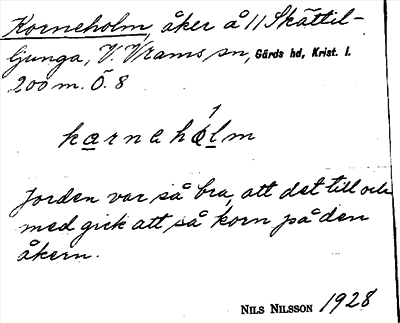 Korneholm, åker å 11 Skättil-
ljunga, V. Vrams sn, Gärds hd, Krist. l.
200 m. Ö. 8
karnahòlm
Jorden var så bra, att det till och
med gick att så korn på den
åkern.
NILS NILSSON 1928